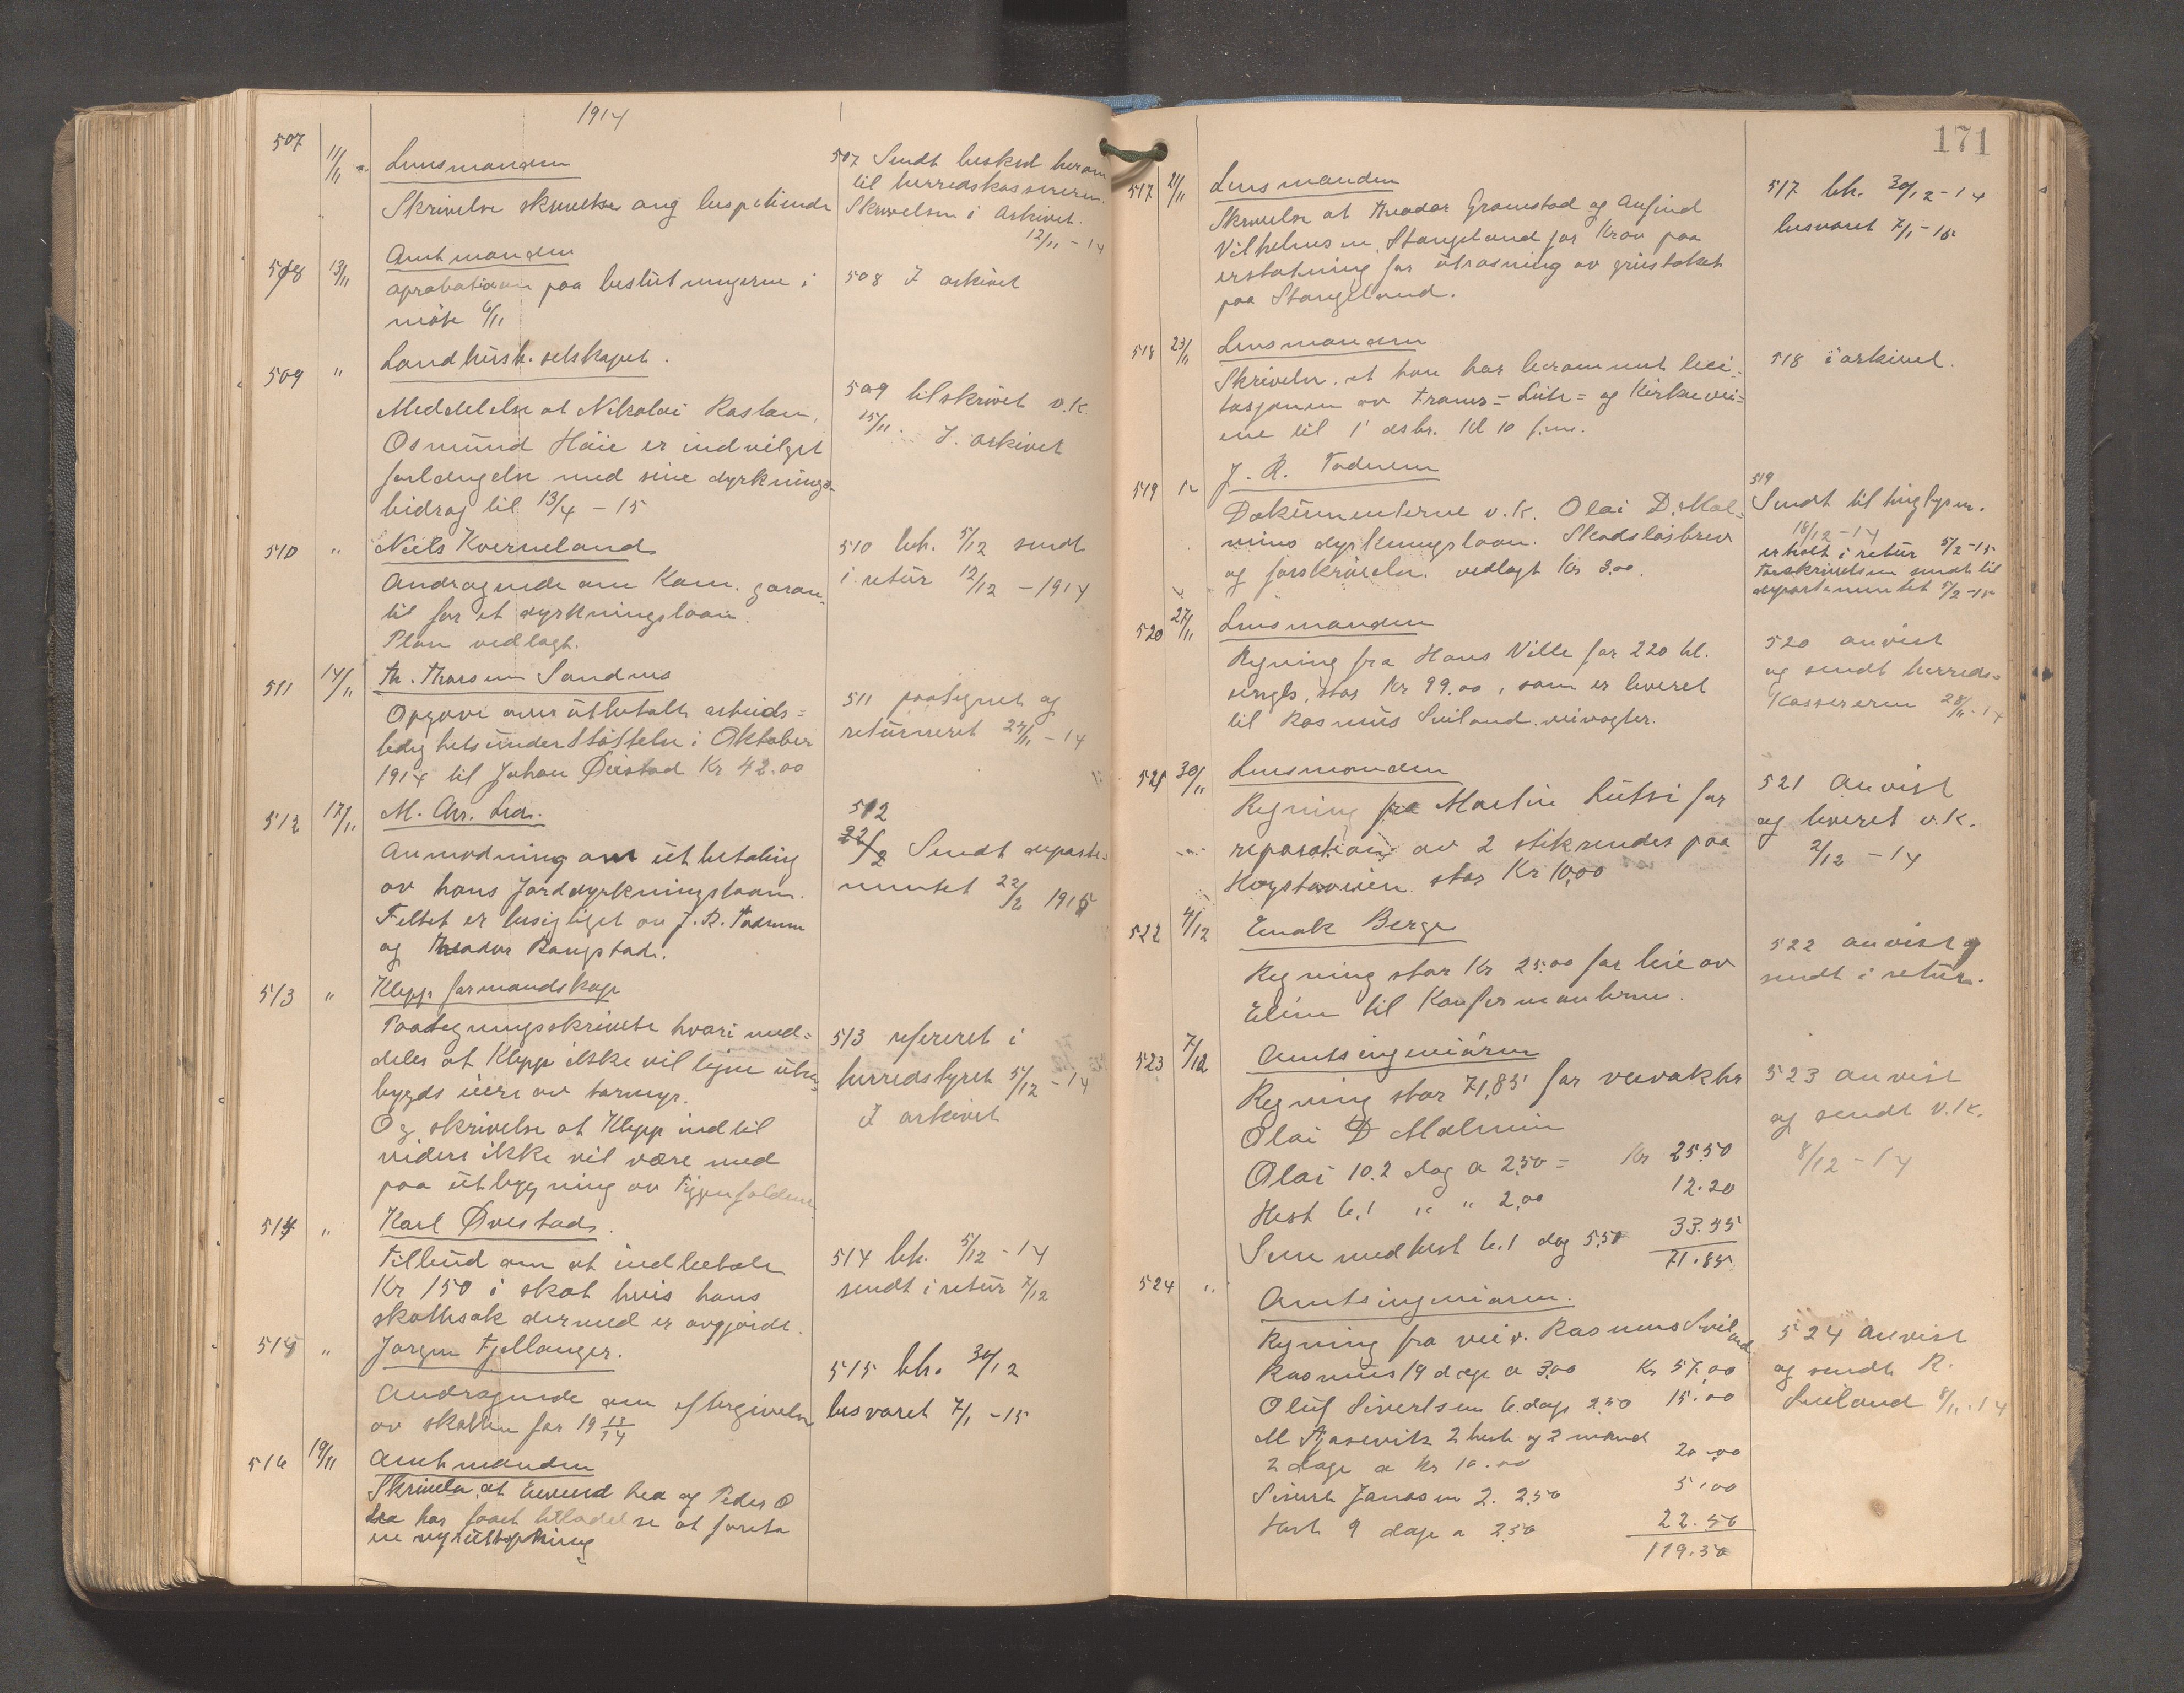 1914
507 11/11 Lensmanden
Skrivelse skrivelse ang bespisende
507 Sendt besked herom
til herredskassereren.
Skrivelsen i arkivet.
12/11 - 14
508 13/11 Amtmanden
aprobation paa beslutningerne i
møte 6/11
508 I arkivet
509 " Landhush. selskapet.
Meddelelse at Nikolai Raston,
Osmund Høie er indvilget
forlængelse med sine dyrknings-
bidrag til 13/4 - 15
509 tilskrivet v.k.
25/11. I. arkivet
510 " Niels Kverneland
Andragende om Kom. garan-
ti for et dyrkningslaan.
Plan vedlagt.
510 beh. 5/12 sendt
i retur 12/12 - 1914
511 14/11 Th. Thorsen Sandnes
Opgave over utbetalt arbeids=
ledighetsunderstøttelse i Oktober
1914 til Johan Øvestad Kr 42.00
511 paategnet og
returneret 24/11 - 14
512 17/11 M. Chr. Lea.
Anmodning om utbetaling
av hans Jorddyrkningslaan.
Feltet er besigtiget av J. R. Todnem
og Theodor Raugstad.
512
22/2 Sendt departe-
mentet 22/2 1915
513 " Klepp formandskap
Paategningsskrivelse hvori med=
deles at Klepp ikke vil leie uten-
bygds eiere av tormyr.
Og skrivelse at Klepp indtil
videre ikke vil være med
paa utbygning av Figgenfaldene
513 refereret i
herredstyret 5/12 - 14
I arkivet
514 " Karl Øvestad.
Tilbud om at indbetale
Kr 150 i skat hvis hans
skattesak dermed er avgjort.
514 beh. 5/12 - 14
sendt i retur 7/12
515 " Jørgen Fjellanger.
Andragende om eftergivelse
av skatten for 19 13/14
515 beh. 30/12
besvaret 7/1 - 15
516 19/11 Amtmanden
Skrivelse, at Eivind Lea og Peder O
Lea har faaet tilladelse at foreta
en ny utskiftning
171
517 21/11 Lensmanden
Skrivelse at Theodor Gramstad og Anfind
Vilhelmsen, Stangeland for Krav paa
erstatning for utrasning av grustaket
paa Stangeland.
517 beh. 30/12 - 14
besvaret 7/1 - 15
518 23/11 Lensmanden
Skrivelse, at han har berammet lici-
tasjonen av Frøner = Lute = og Kirkevei=
ene til 1' dsbr. kl 10 f.m.
518 i arkivet.
519 J. R. Todnem
Dokumenterne v.k. Olai D. Mal-
mins dyrkningslaan. Skadesløsbrev
og forskrivelse. vedlagt Kr 3.00.
519
Sendt til tinglysen.
18/12 - 14
erholdt i retur 5/2 - 15
Forskrivelsen sendt til
departementet 5/2 - 15
520 27/11 Lensmanden
Regning fra Hans Ville for 220 hl.
singls, stor Kr 99.00, som er leveret
til Rasmus Sviland. veivogter.
520 anvist
og sendt herreds-
kassereren 28/11 - 14
521 30/11 Lensmanden
Regning fra Martin Lutsi for
reparation av 2 stikrender paa
Høgstaveien. stor Kr 10,00
521 Anvist
og leveret v.k.
2/12 - 14
522 4/12 Enok Berge
Regning stor Kr 25.00 for leie av
Elim til Konfermanterne.
522 anvist og
sendt i retur.
523 7/12 Amtsingeniøren
Regning stor 71,85 for veivokter
Olai D Malmin
Olai 10.2 dag a 2.50 = Kr 25.50
Hest 6.1 " " 2.00 12.20
Svin med hest 6.1 dag 5.50 33.55
71.85
523 anvist
og sendt v.k.
8/12 - 14
524 " Amtsingeniøren.
Regning fra veiv. Rasmus Sviland
Rasmus 19 dage a 3.00 Kr 57,00
Oluf Sivertsen 6. dage 2.50 15.00
M Aasevik 2 hest og 2 mand
2 dage a Kr 10.00 20.00
Sivert Janasen 2. 2.50 5.00
Hest 9 dage a 2.50 22.50
119.50
524 Anvist
og sendt R.
Sviland 8/12 - 14